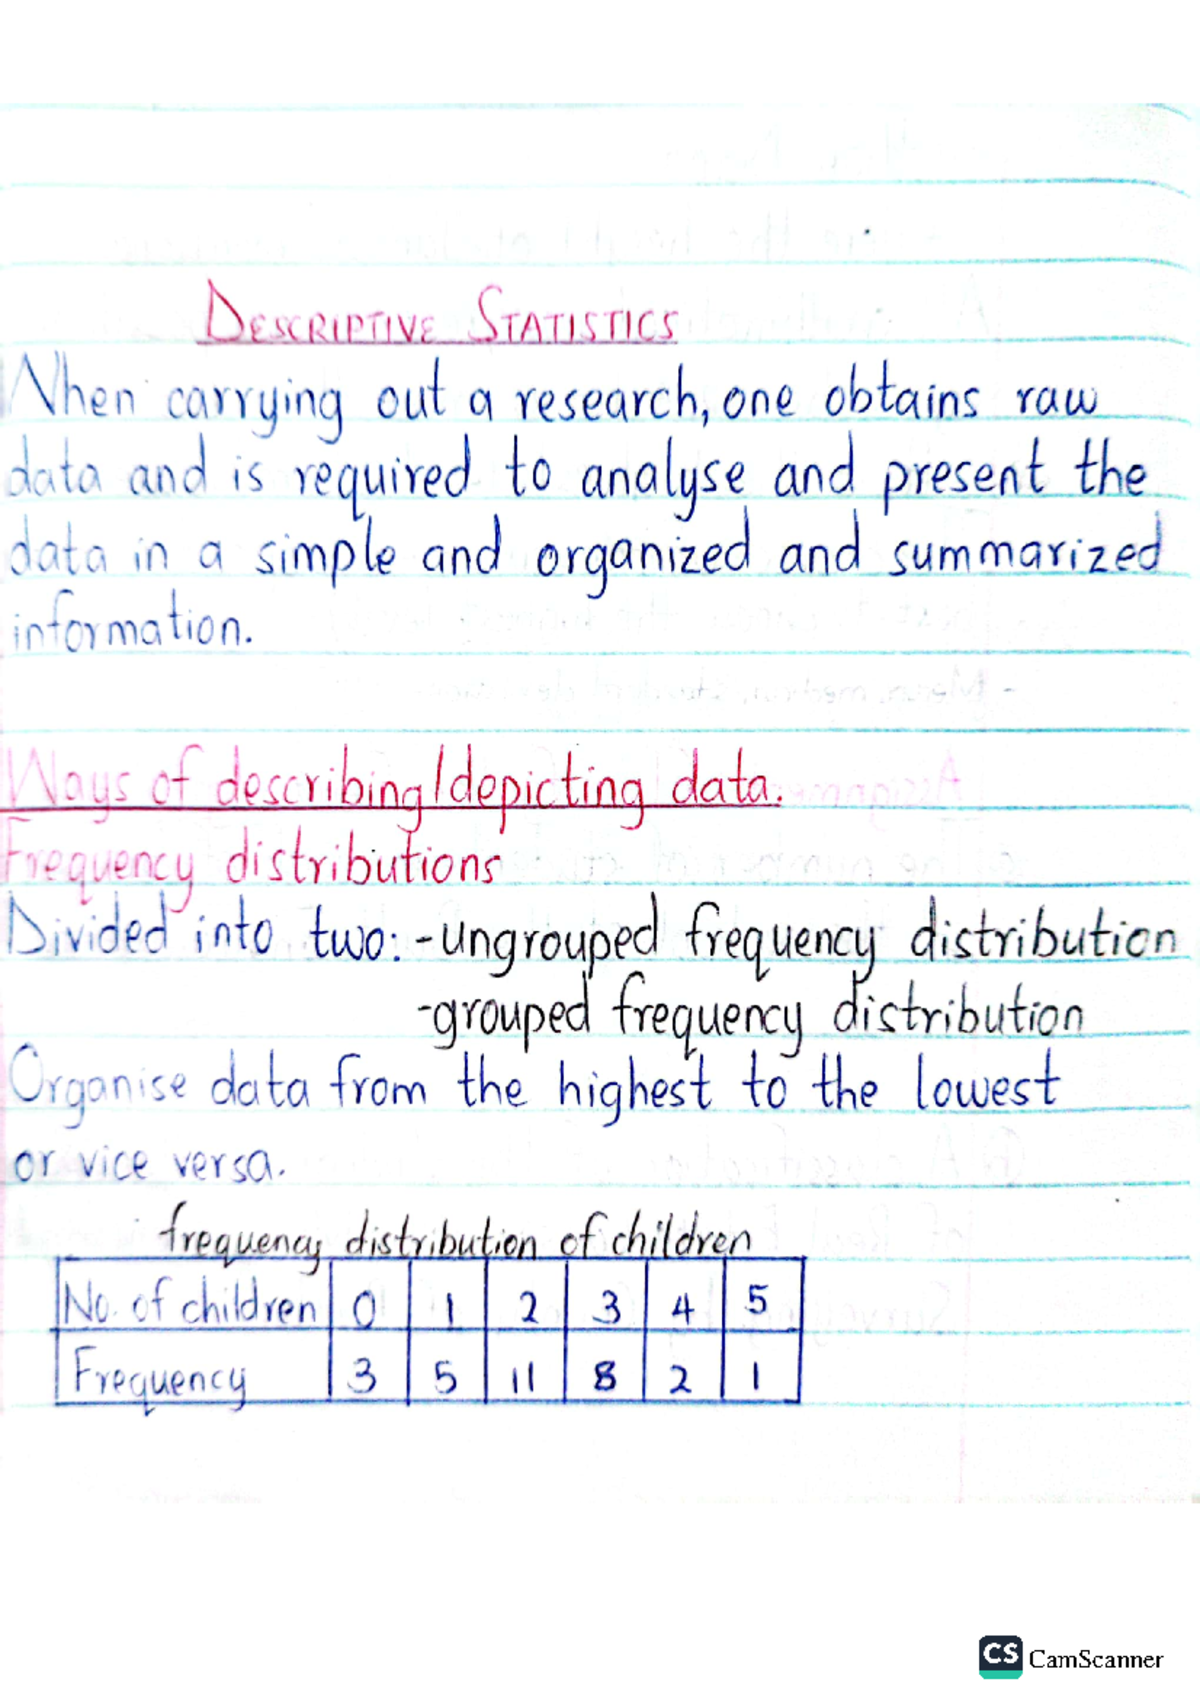 DESCRIPTIVE STATISTICS
When carrying out a research, one obtains raw
data and is required to analyse and present the
data in a simple and organized and summarized
information.
Ways of describing/depicting data.
Frequency distributions
Divided into two: -ungrouped frequency distribution
-grouped frequency distribution
Organise data from the highest to the lowest
or vice versa.
frequency distribution of children
No. of children 0 1 2 3 4 5
Frequency 3 5 11 8 2 1
CS CamScanner